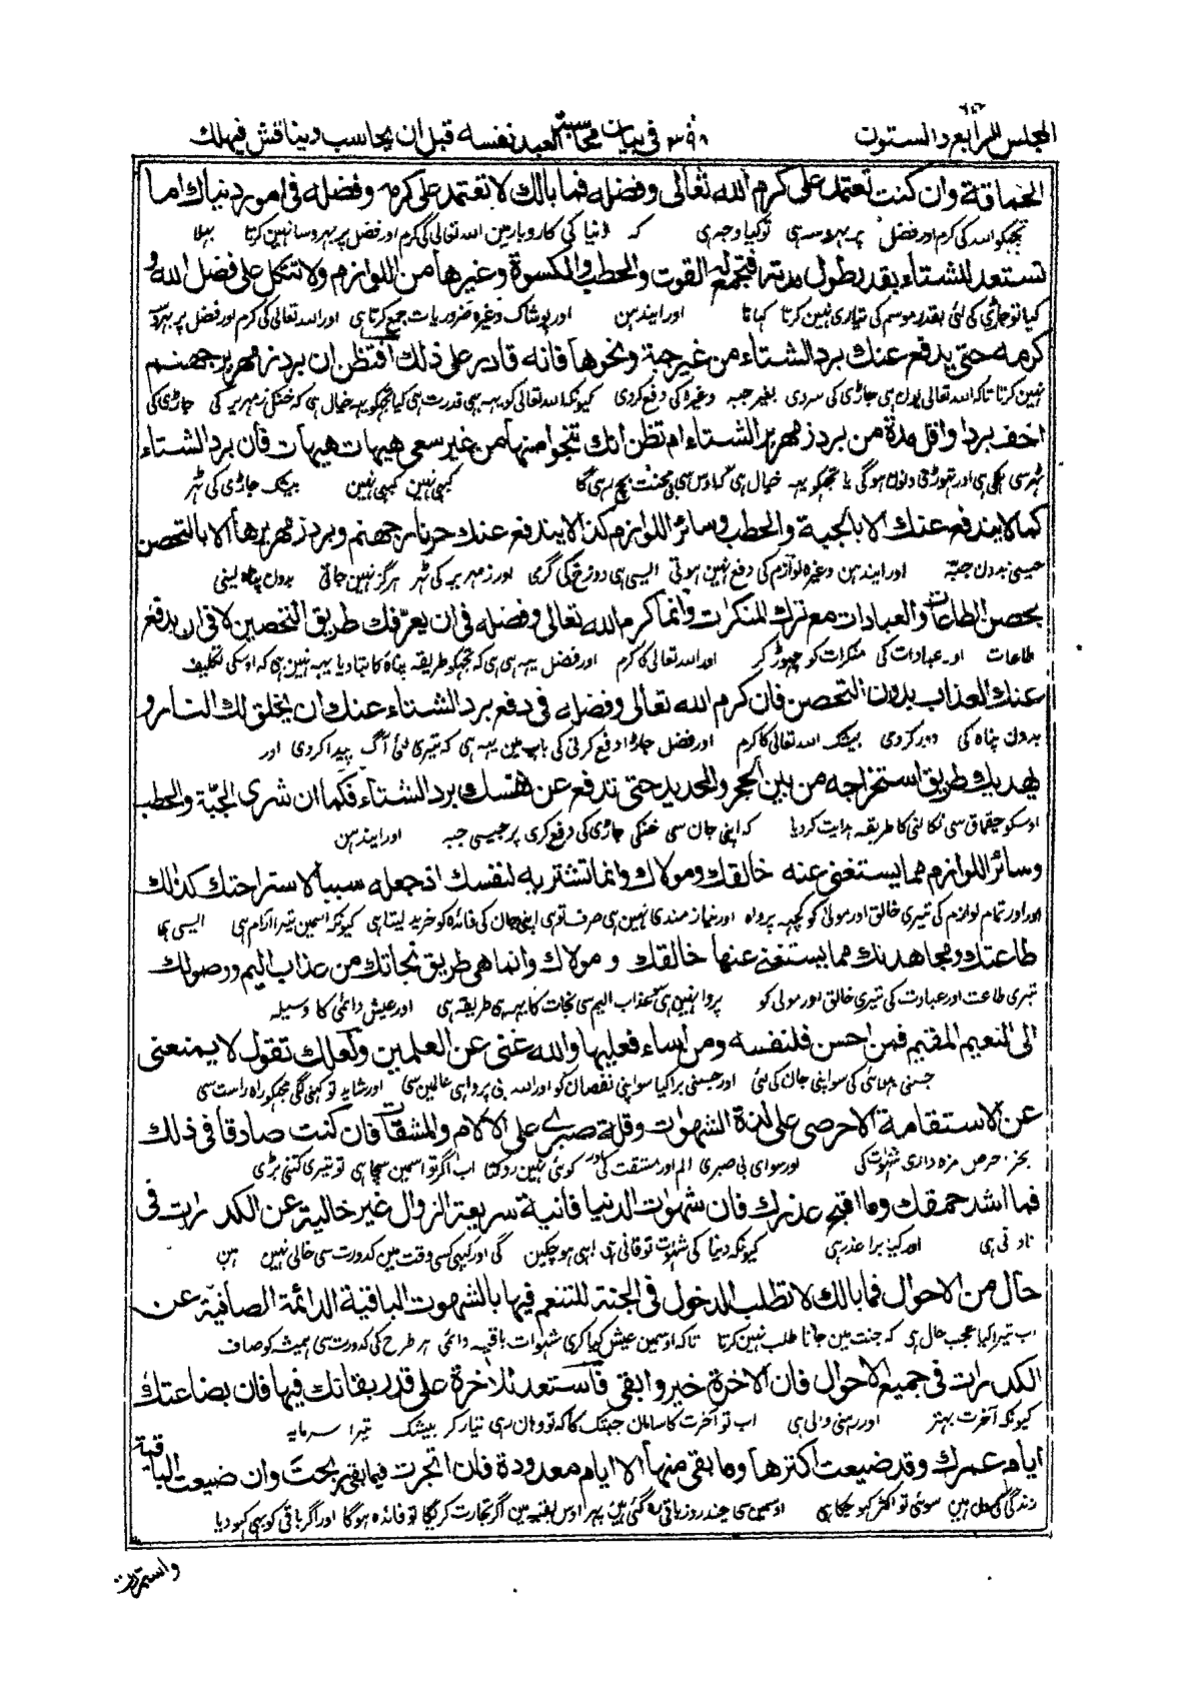 المجلس الرابع والستون ٣٩٨ في بيان محاسبة العبد نفسه قبل ان يحاسب ويناقش فيهلك
الحماقة وان كنت تعتمد على كرم الله تعالى وفضله فما بالك لا تعتمد على كرمه وفضله في امور دنياك اما
تجهکو اللہ کی کرم اور فضل پر بہروسہ ہی توکیا وجہ ہی کہ دنیا کی کاروبار مین اللہ تعالی کی کرم اور فضل پر بہروسا نہین کرتا بہلا
تستعد للشتاء بقدر طول مدته فتجمع له القوت والحطب والكسوة وغيرها من اللوازم ولا تتكل على فضل الله و
کیا تو جاڑی کی لئی بقدر موسم کی تیاری نہین کرتا کہانا اور ایندہن اور پوشاک وغیرہ ضروریات جمع کرتا ہی اور اللہ تعالی کی کرم اور فضل پر بہروسہ
كرمه حتى يدفع عنك برد الشتاء من غير جبة ونحوها فانه قادر على ذلك افتظن ان برد زمهرير جهنم
نہین کرتا تاکہ اللہ تعالی یون ہی جاڑی کی سردی بغیر جبہ وغیرہ کی دفع کردی کیونکہ اللہ تعالی کو یہہ بہی قدرت ہی کیا تجہکو یہہ خیال ہی کہ خنکی زمہریر کی جاڑی کی
اخف بردا واقل مدة من برد زمهرير الشتاء ام تظن انك تنجوا منها من غير سعي هيهات هيهات فان برد الشتاء
ٹہر سی ہلکی ہی اور تہوڑی دنون ہوگی یا تجہکو یہہ خیال ہی کہ اوس سی بی محنت بچ رہی گا کبہی نہین کبہی نہین بیشک جاڑی کی ٹہر
كما لا يندفع عنك الا بالجبة والحطب وسائر اللوازم كذا لا يندفع عنك حر نار جهنم وبرد زمهريرها الا بالتحصن
جیسی بدون جبہ اور ایندہن وغیرہ لوازم کی دفع نہین ہوتی الیسی ہی دوزخ کی گرمی اور زمہریر کی ٹہر ہرگز نہین جاتی بدون پناہ لینی
بحصن الطاعات والعبادات مع ترك المنكرات وانما كرم الله تعالى وفضله في ان يعرفك طريق التحصين لا في ان يدفع
طاعات اور عبادات کی منکرات کو چہوڑ کر اور اللہ تعالی کا کرم اور فضل یہہ ہی ہی کہ تجہکو طریقہ پناہ کا بتا دیا یہہ نہین ہی کہ اوسکی تکلیف
عنك العذاب بدون التحصن فان كرم الله تعالى وفضله في دفع برد الشتاء عنك ان يخلق لك النار و
بدون پناہ کی دور کردی بیشک اللہ تعالی کا کرم اور فضل جاڑا دفع کرنی کی باب مین یہہ ہی کہ تیری لئی آگ پیدا کردی اور
يهديك طريق استخراجه من بين الحجر والحديد حتى تدفع عن نفسك برد الشتاء فكما ان شرى الجبة والحطب
اوسکو چقماق سی نکالنی کا طریقہ ہدایت کردیا کہ اپنی جان سی خنکی جاڑی کی دفع کری پر جیسی جبہ اور ایندہن
وسائر اللوازم مما يستغني عنه خالقك ومولاك وانما تشتريه لنفسك اذ جعله سببا لاستراحتك كذلك
اور اور تمام لوازم کی تیری خالق اور مولی کو کچہہ پرواہ اور نیازمندی نہین ہی صرف تو ہی اپنی جان کی فائدہ کو خرید لیتا ہی کیونکہ اسمین تیرا آرام ہی الیسی ہی
طاعتك ومجاهدتك مما يستغني عنها خالقك و مولاك وانما هي طريق نجاتك من عذاب اليم ووصولك
تیری طاعت اور عبادت کی تیری خالق اور مولی کو پروا نہین ہی عذاب الیم سی نجات کا یہہ ہی طریقہ ہی اور عیش دائمی کا وسیلہ
الى النعيم المقيم فمن احسن فلنفسه ومن اساء فعليها والله غني عن العلمين ولعلك تقول لا يمنعني
جسنی بہلائی کی سو اپنی جان کی لئی اور جسنی برا کیا سو اپنی نقصان کو اور اللہ بی پرواہی عالمین سی اور شاید تو کہنی لگی مجہکو راہ راست سی
عن الاستقامة الا حرصي على لذة الشهوات وقلة صبري على الالام والمشقات فان كنت صادقا في ذلك
بجز حرص مزہ داری شہوات کی اور سوای بی صبری الم اور مشقت کی اور کوئی نہین روکتا اب اگر تو اسمین سچا ہی تو تیری کتنی بڑی
فما اشد حمقك وما اقبح عذرك فان شهوات الدنيا فانية سريعة الزوال غير خالية عن الكدرات في
نادانی ہی اور کیا برا عذر ہی کیونکہ دنیا کی شہوات تو فانی ہی ابہی ہو چکین گی اور کبہی کسی وقت مین کدورت سی خالی نہین ہین
حال من الاحوال فما بالك لا تطلب الدخول في الجنة للتنعم فيها بالشهوت الباقية الدائمة الصافية عن
اب تیرا کیا عجب حال ہی کہ جنت مین جانا طلب نہین کرتا تاکہ اوسمین عیش کیا کری شہوات باقیہ دائمی ہر طرح کی کدورت سی ہمیشہ کو صاف
الكدرات في جميع الاحوال فان الاخرة خير وابقى فاستعد للاخرة على قدر بقائك فيها فان بضاعتك
کیونکہ آخرت بہتر اور رہنی والی ہی اب تو آخرت کا سامان جبتک کا کہ تو وہان رہی تیار کر بیشک تیرا سرمایہ
ايام عمرك وقد ضيعت اكثرها وما بقي منها الا ايام معدودة فان اتجرت فيما بقي ربحت وان ضيعت الباقية
زندگی کی دن ہین سوئی تو اکثر کہو چکا ہی اوسمین سی چند روز باقی رہ گئی ہین پہر اوس بقیہ مین اگر تجارت کریگا تو فائدہ ہوگا اور اگر باقی کو بہی کہو دیا
واستمررت